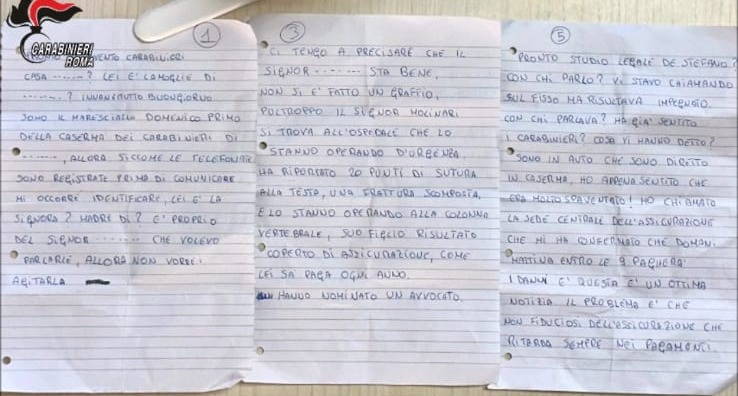 CARABINIERI
ROMA
1
PRONTO INTERVENTO CARABINIERI
CASA ........? LEI E' LA MOGLIE DI
........? INNANZITUTTO BUONGIORNO
SONO IL MARESCIALLO DOMENICO PRIMO
DELLA CASERMA DEI CARABINIERI DI
........, ALLORA SICCOME LE TELEFONATE
SONO REGISTRATE PRIMA DI COMUNICARE
MI OCCORRE IDENTIFICARE, LEI E' LA
SIGNORA? MADRE DI? E' PROPRIO
DEL SIGNOR ........ CHE VOLEVO
PARLARLE, ALLORA NON VORREI
AGITARLA
3
CI TENGO A PRECISARE CHE IL
SIGNOR ........ STA BENE,
NON SI E' FATTO UN GRAFFIO,
PULTROPPO IL SIGNOR MOLINARI
SI TROVA ALL'OSPEDALE CHE LO
STANNO OPERANDO D'URGENZA
HA RIPORTATO 20 PUNTI DI SUTURA
ALLA TESTA, UNA FRATTURA SCOMPOSTA,
E LO STANNO OPERANDO ALLA COLONNA
VERTEBRALE, SUO FIGLIO RISULTATO
COPERTO DI ASSICURAZIONE, COME
LEI SA PAGA OGNI ANNO.
HANNO NOMINATO UN AVVOCATO.
5
PRONTO STUDIO LEGALE DE STEFANO?
CON CHI PARLO? VI STAVO CHIAMANDO
SUL FISSO MA RISULTAVA IMPEGNIO.
CON CHI PARLAVA? HA GIA' SENTITO
I CARABINIERI? COSA VI HANNO DETTO?
SONO IN AUTO CHE SONO DIRETTO
IN CASERMA, HO APPENA SENTITO CHE
ERA MOLTO SPAVENTATO! HO CHIAMATO
LA SEDE CENTRALE DELL'ASSICURAZIONE
CHE MI HA CONFERMATO CHE DOMANI
MATTINA ENTRO LE 9 PAGHERA'
I DANNI E' QUESTA E' UN OTTIMA
NOTIZIA IL PROBLEMA E' CHE
NON FIDUCIOSI DELL'ASSICURAZIONE CHE
RITARDA SEMPRE NEI PAGAMENTI.